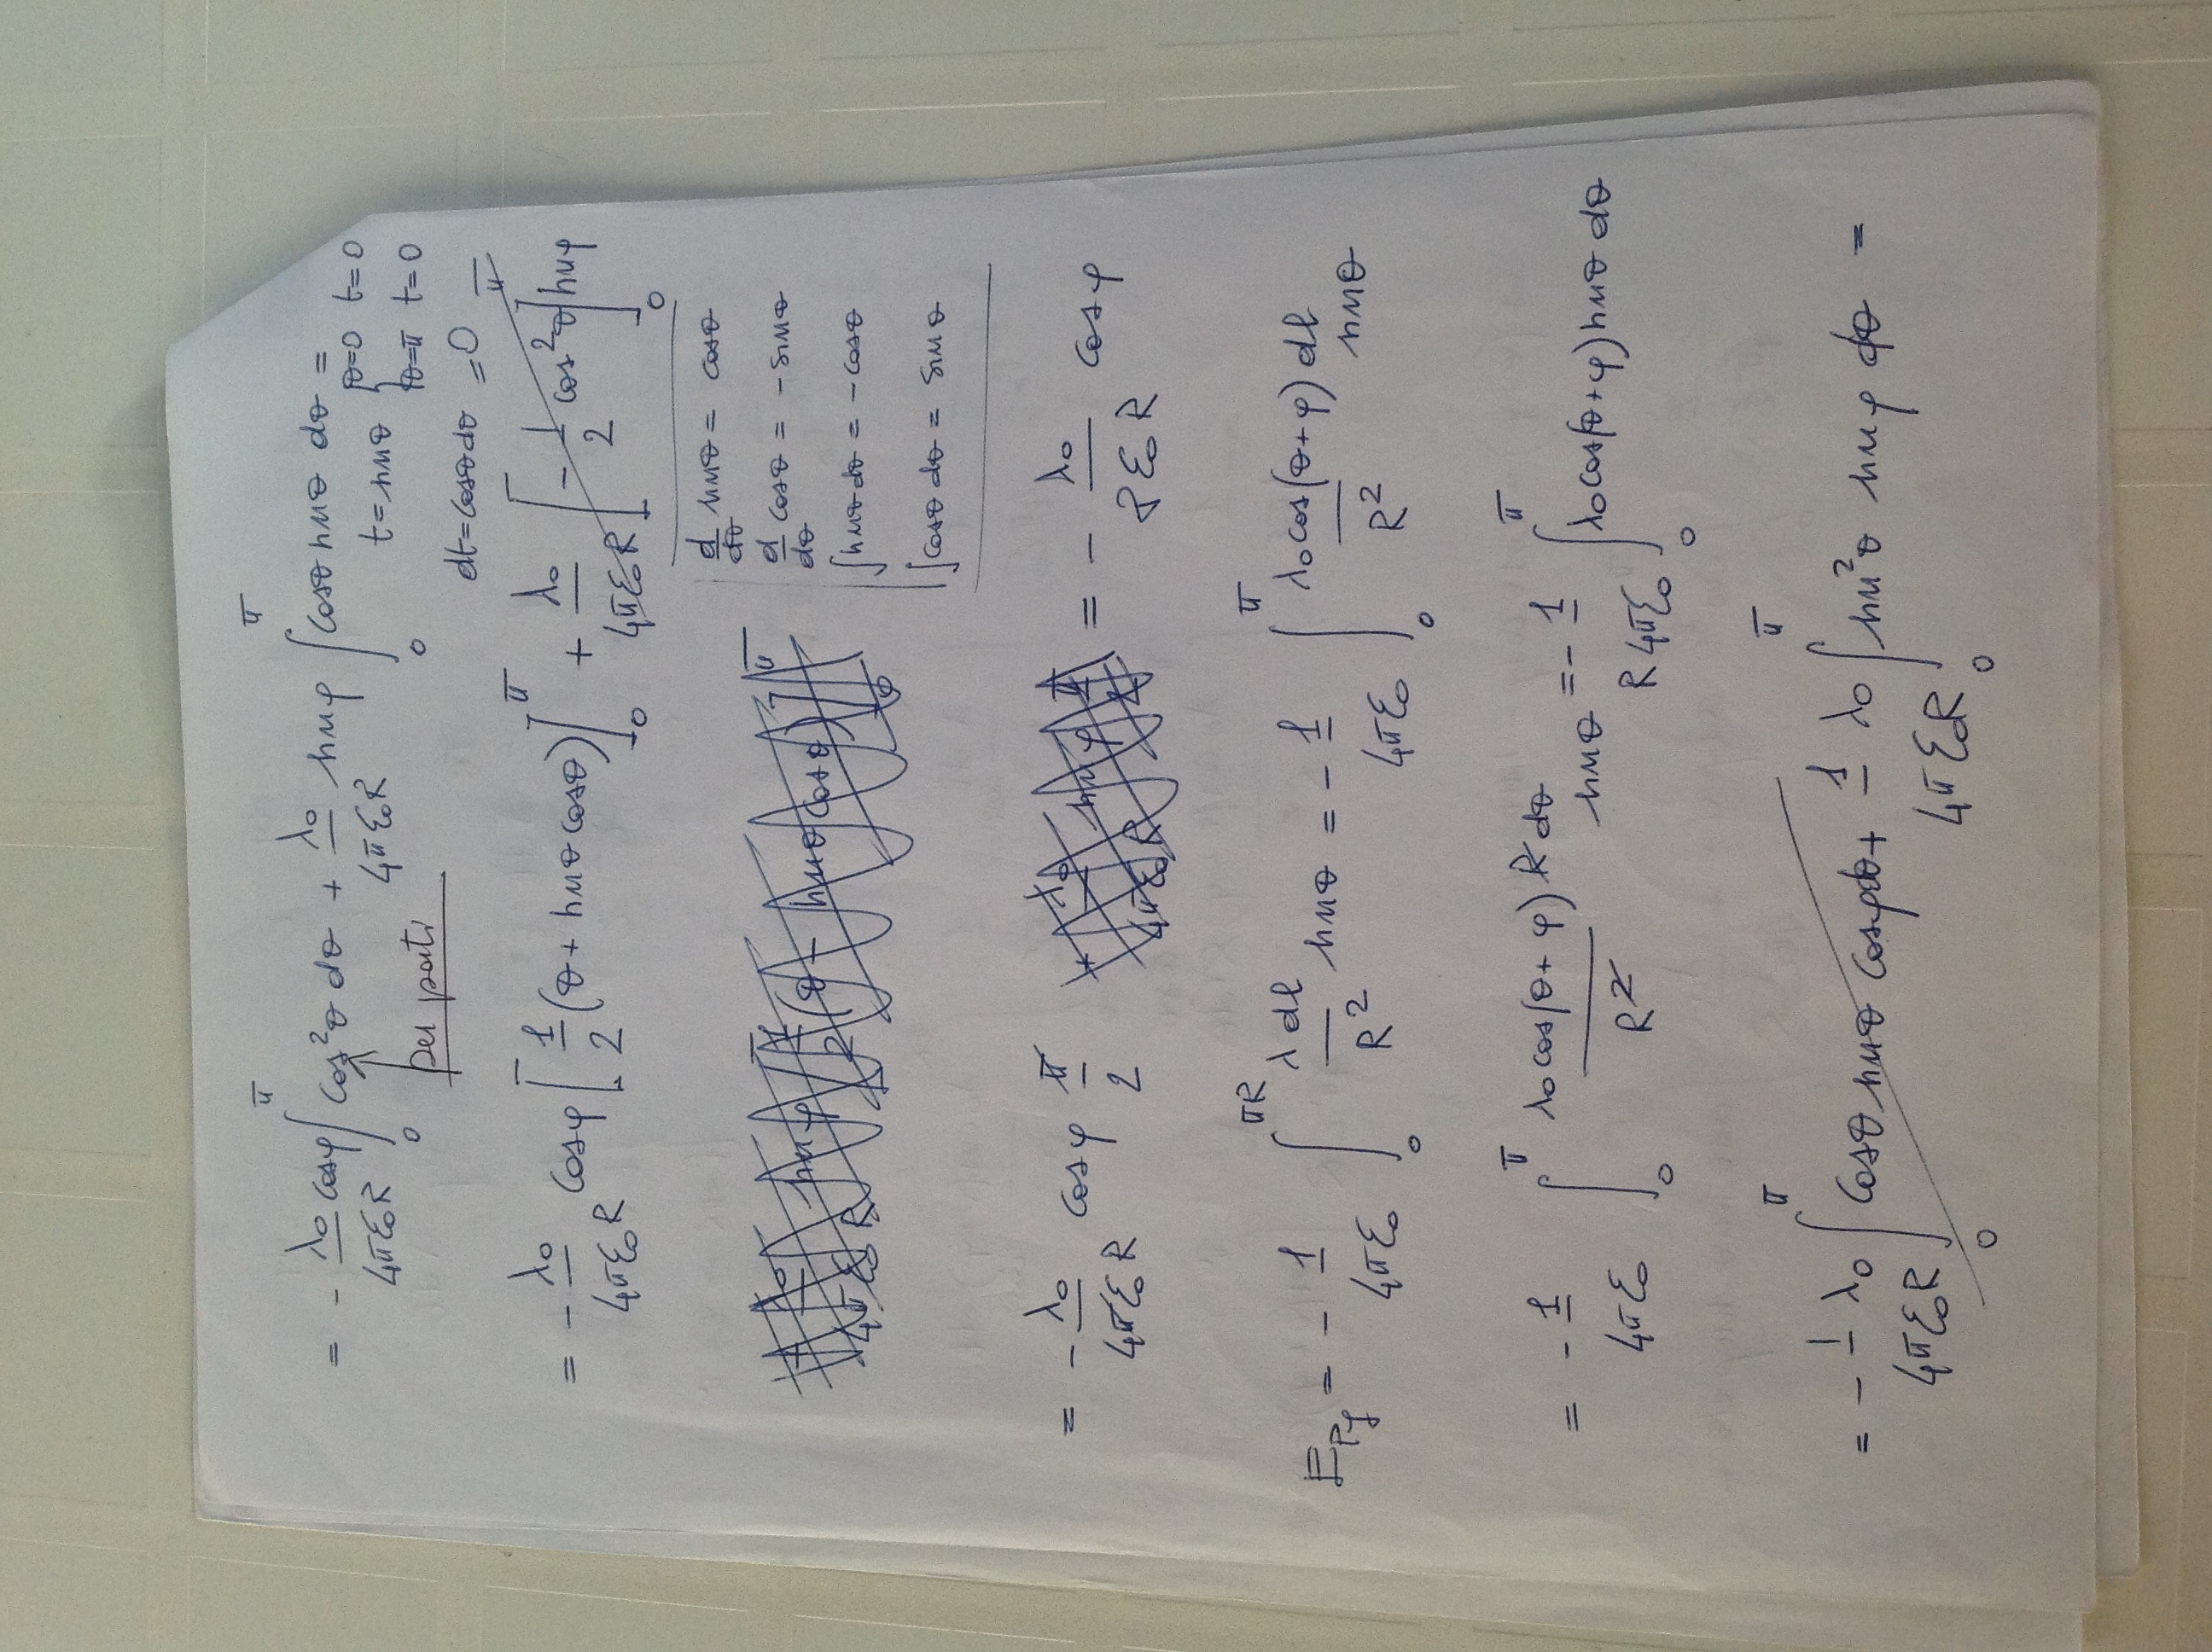 = - λ₀/4πε₀R cosφ ∫₀^π cos²θ dθ + λ₀/4πε₀R sinφ ∫₀^π cosθ sinθ dθ =
per parti
t = sinθ { θ=0 t=0
θ=π t=0
dt = cosθ dθ = 0
= - λ₀/4πε₀R cosφ [ 1/2 (θ + sinθ cosθ) ]₀^π + λ₀/4πε₀R [ - 1/2 cos²θ ]₀^π sinφ
d/dθ sinθ = cosθ
d/dθ cosθ = - sinθ
∫ sinθ dθ = - cosθ
∫ cosθ dθ = sinθ
sinφ [ 1/2 (θ - sinθ cosθ) ]₀^π
4πε₀R
= - λ₀/4πε₀R cosφ π/2 + λ₀/4πε₀R sinφ π/2 = - λ₀/8ε₀R cosφ
E_Py = - 1/4πε₀ ∫₀^πR λ dl/R² sinθ = - 1/4πε₀ ∫₀^π λ₀ cos(θ+φ) dl/R² sinθ
= - 1/4πε₀ ∫₀^π λ₀ cos(θ+φ) R dθ/R² sinθ = - 1/R 4πε₀ ∫₀^π λ₀ cos(θ+φ) sinθ dθ
= - 1/4πε₀R λ₀ ∫₀^π cosθ sinθ cosφ dθ + 1/4πε₀R λ₀ ∫₀^π sin²θ sinφ dθ =